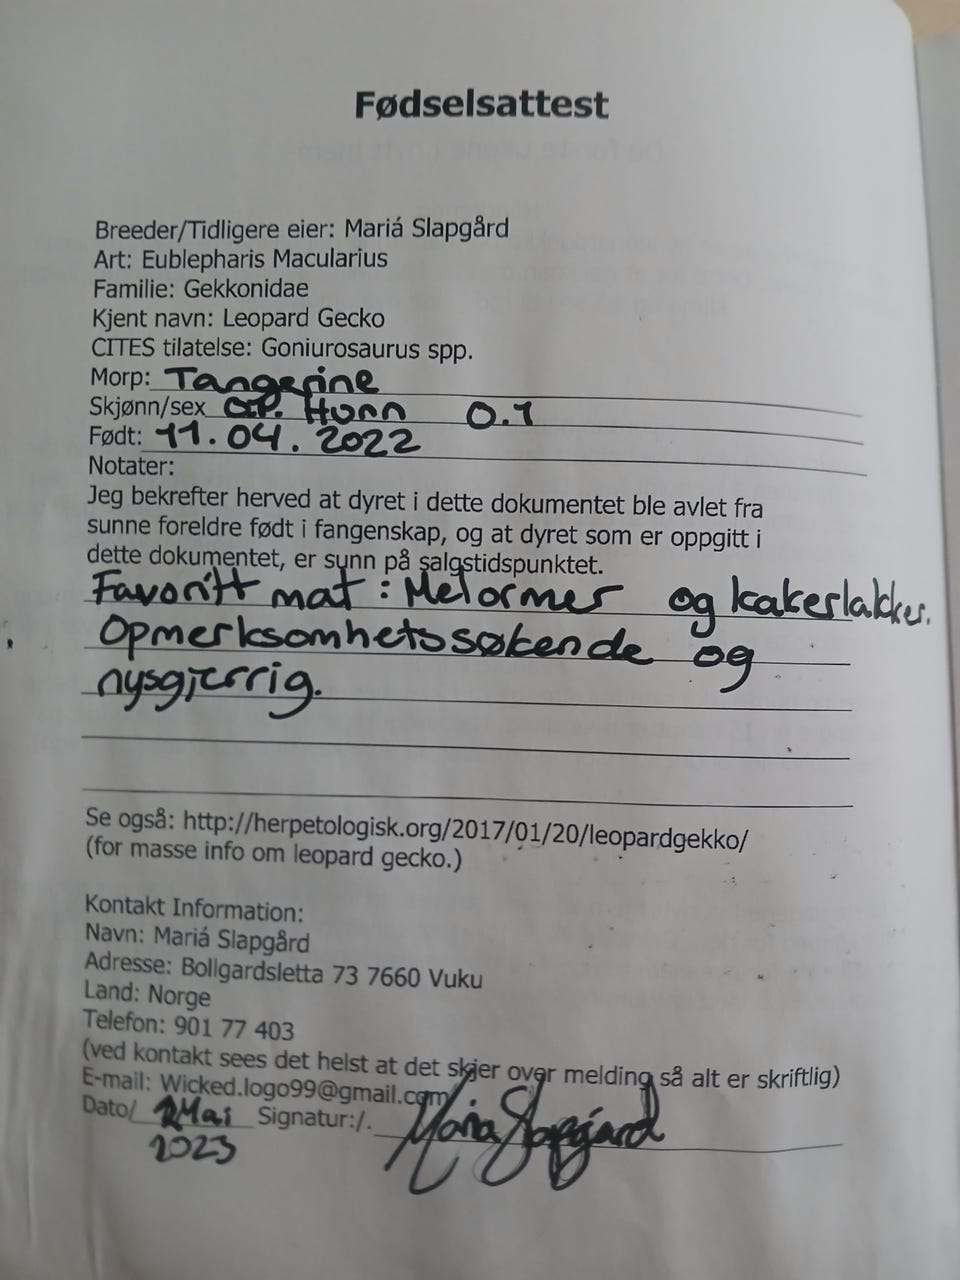 Fødselsattest
Breeder/Tidligere eier: Mariá Slapgård
Art: Eublepharis Macularius
Familie: Gekkonidae
Kjent navn: Leopard Gecko
CITES tilatelse: Goniurosaurus spp.
Morp: Tangerine
Skjønn/sex Hunn 0.1
Født: 11.04.2022
Notater:
Jeg bekrefter herved at dyret i dette dokumentet ble avlet fra
sunne foreldre født i fangenskap, og at dyret som er oppgitt i
dette dokumentet, er sunn på salgstidspunktet.
Favoritt mat: Melormer og kakerlakker.
Opmerksomhetssøkende og
nysgjerrig.
Se også: http://herpetologisk.org/2017/01/20/leopardgekko/
(for masse info om leopard gecko.)
Kontakt Information:
Navn: Mariá Slapgård
Adresse: Bollgardsletta 73 7660 Vuku
Land: Norge
Telefon: 901 77 403
(ved kontakt sees det helst at det skjer over melding så alt er skriftlig)
E-mail: Wicked.logo99@gmail.com
Dato/ 2 Mai Signatur:/. Maria Slapgård
2023